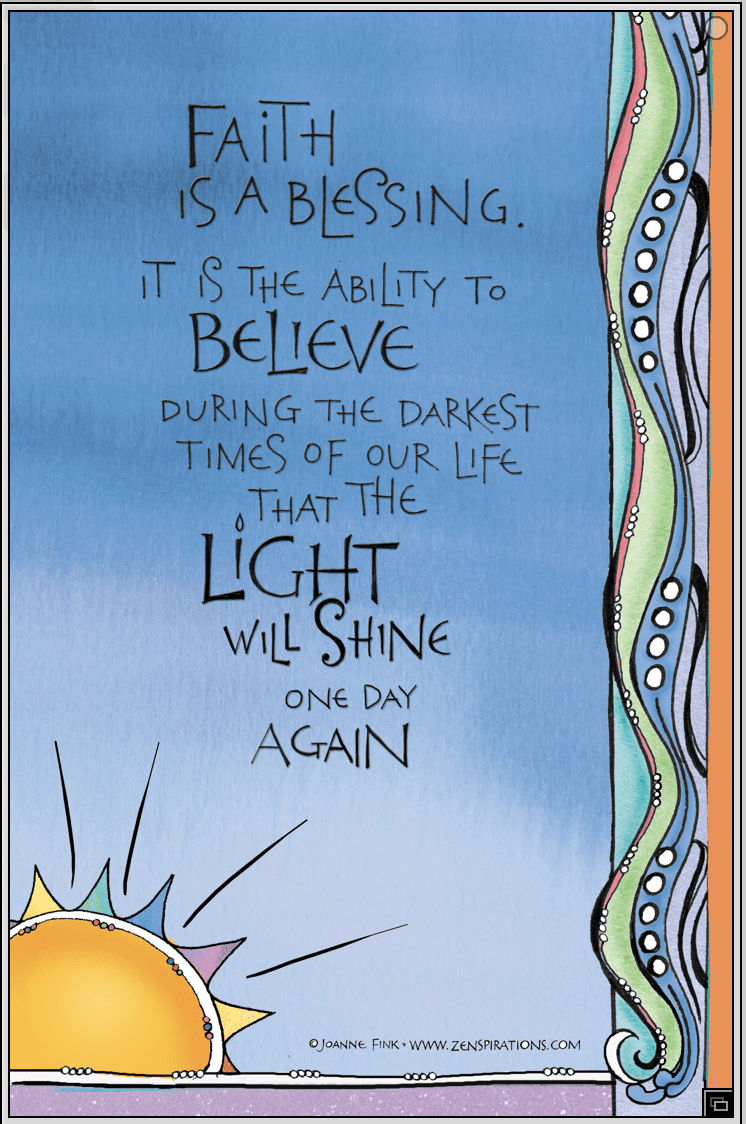 FAITH
IS A BLESSING.
IT IS THE ABILITY TO
BELIEVE
DURING THE DARKEST
TIMES OF OUR LIFE
THAT THE
LIGHT
WILL SHINE
ONE DAY
AGAIN
©JOANNE FINK • WWW.ZENSPIRATIONS.COM